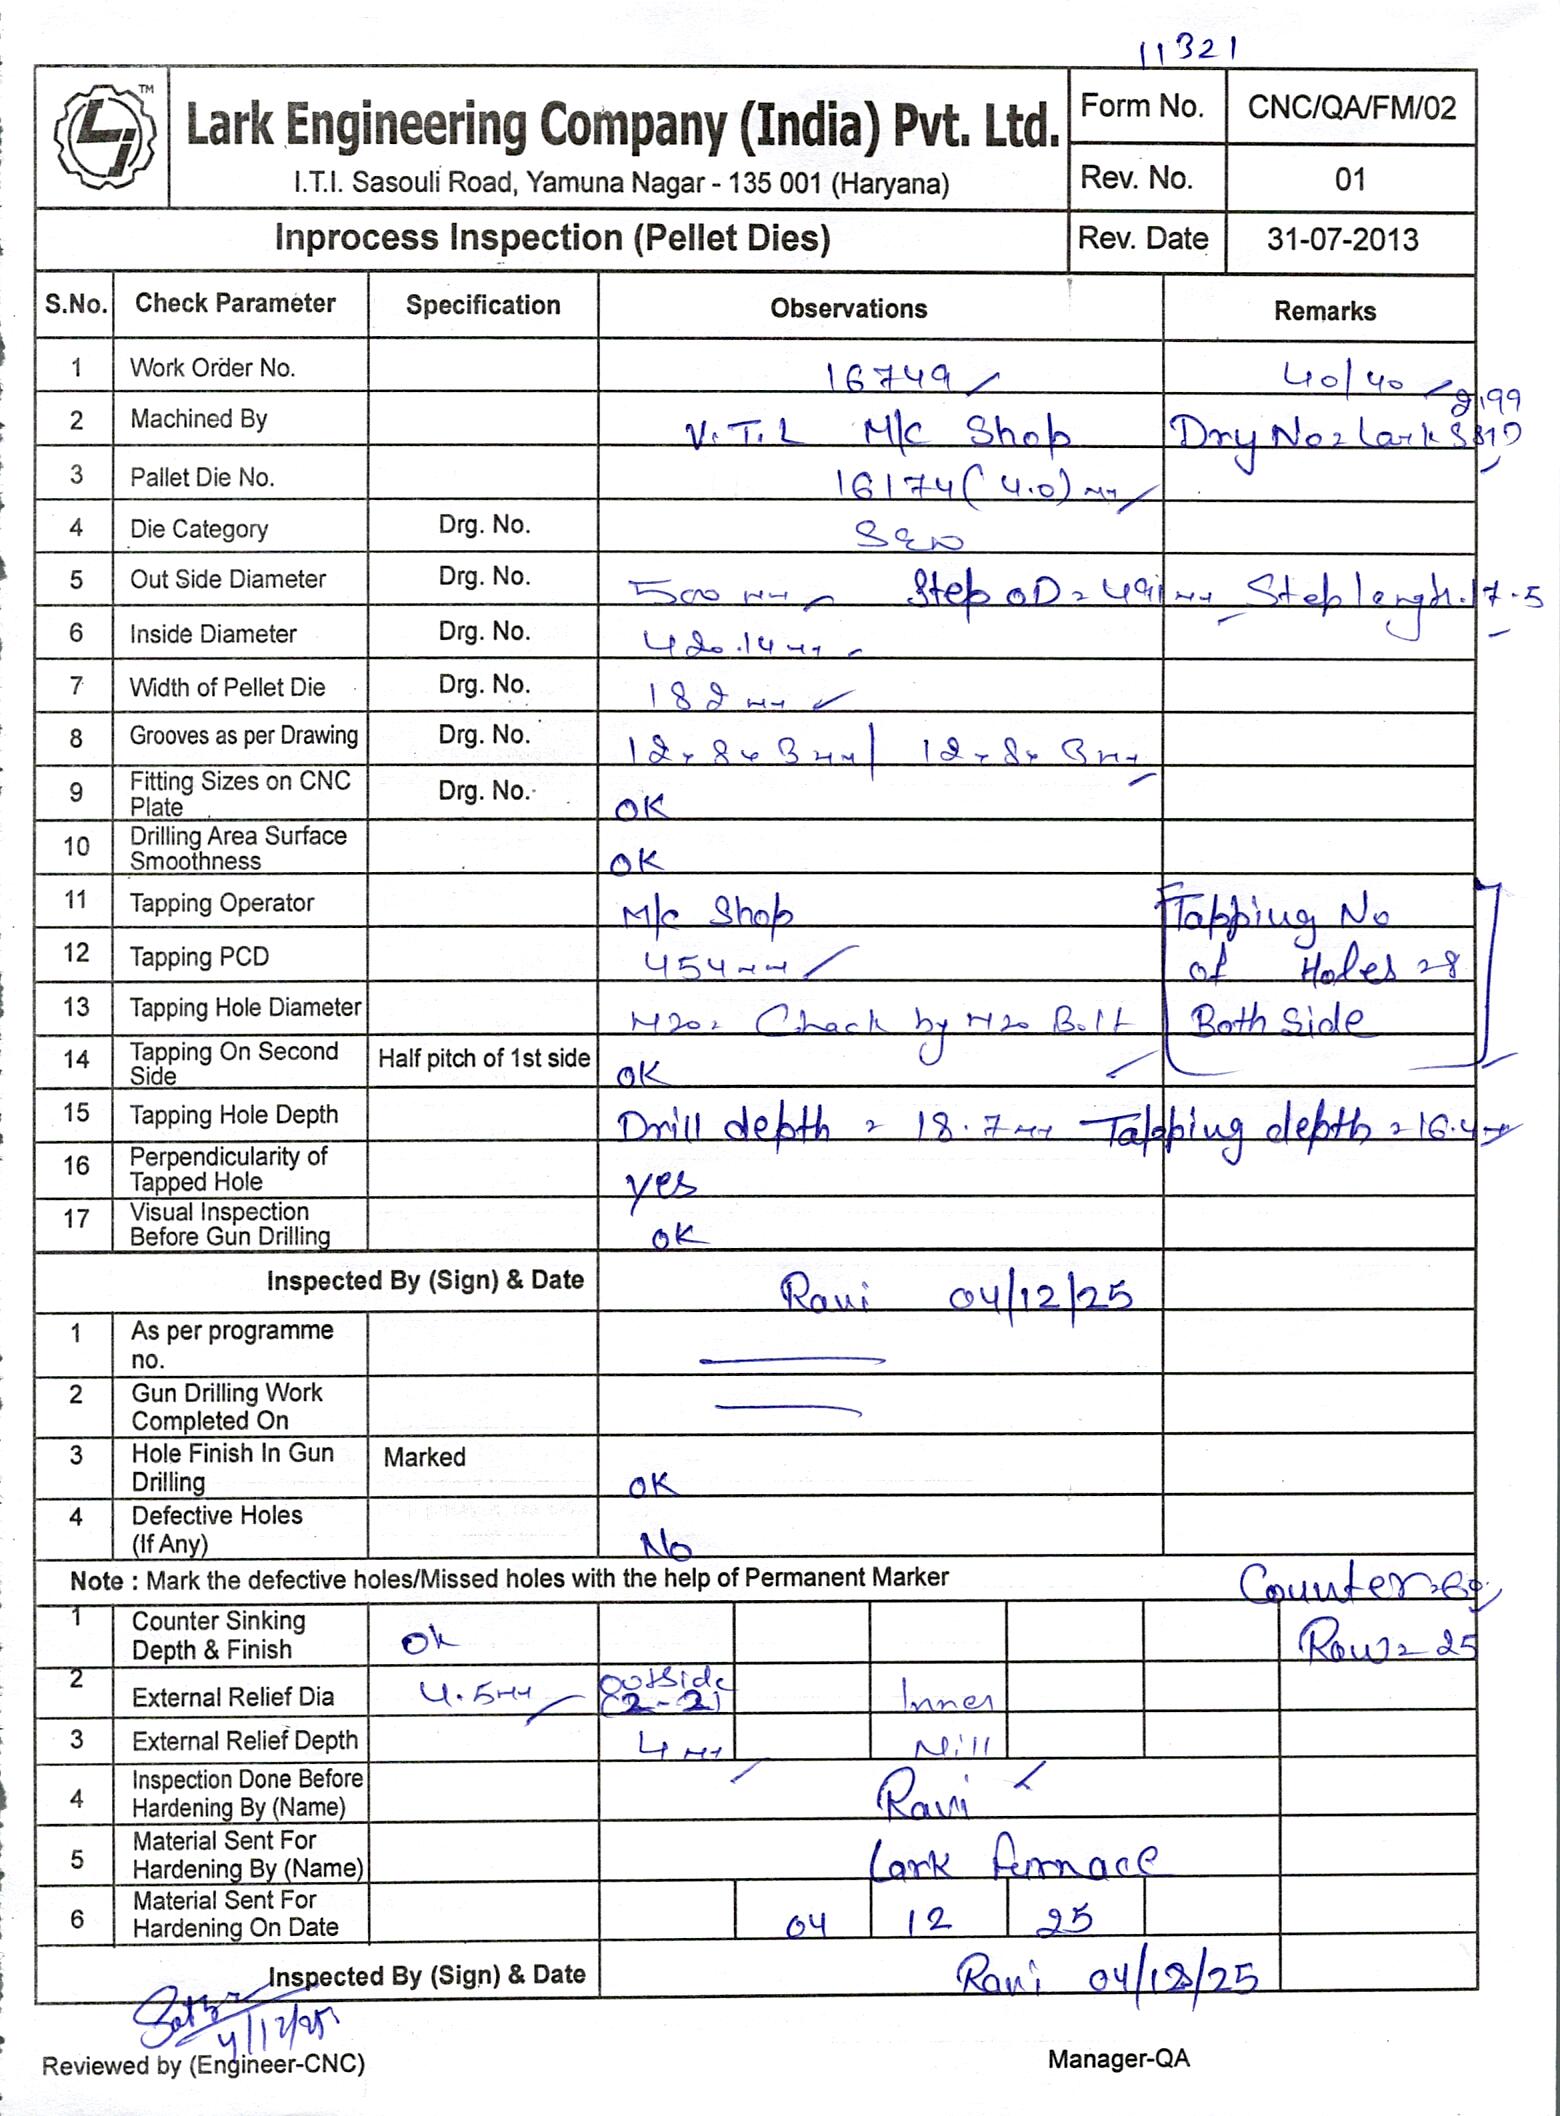 11321
TM
Lark Engineering Company (India) Pvt. Ltd.
I.T.I. Sasouli Road, Yamuna Nagar - 135 001 (Haryana)
Form No. CNC/QA/FM/02
Rev. No. 01
Inprocess Inspection (Pellet Dies) Rev. Date 31-07-2013
S.No. Check Parameter Specification Observations Remarks
1 Work Order No. 16749 40/40
2 Machined By V.T.L M/c Shop Dry No = Lark
3 Pallet Die No. 16174 (4.0) mm
4 Die Category Drg. No.
5 Out Side Diameter Drg. No. 500 mm Step OD = 491 mm Step length. 17.5
6 Inside Diameter Drg. No. 420.14 mm
7 Width of Pellet Die Drg. No. 182 mm
8 Grooves as per Drawing Drg. No. 12 x 8 x 3 mm / 12 x 8 x 3 mm
9 Fitting Sizes on CNC Plate Drg. No. OK
10 Drilling Area Surface Smoothness OK
11 Tapping Operator M/c Shop Tapping No
12 Tapping PCD 454 mm of Holes = 8
13 Tapping Hole Diameter M20 = Chack by M20 Bolt Both Side
14 Tapping On Second Side Half pitch of 1st side OK
15 Tapping Hole Depth Drill depth = 18.7 mm Tapping depth = 16.4 mm
16 Perpendicularity of Tapped Hole yes
17 Visual Inspection Before Gun Drilling OK
Inspected By (Sign) & Date Ravi 04/12/25
1 As per programme no.
2 Gun Drilling Work Completed On
3 Hole Finish In Gun Drilling Marked OK
4 Defective Holes (If Any) No
Note : Mark the defective holes/Missed holes with the help of Permanent Marker Counter
1 Counter Sinking Depth & Finish Ok Row = 25
2 External Relief Dia 4.5 mm outside (2-2) Inner
3 External Relief Depth 4 mm Nill
4 Inspection Done Before Hardening By (Name) Ravi
5 Material Sent For Hardening By (Name) Lark furnace
6 Material Sent For Hardening On Date 04 12 25
Inspected By (Sign) & Date Ravi 04/12/25
4/12/25
Reviewed by (Engineer-CNC) Manager-QA